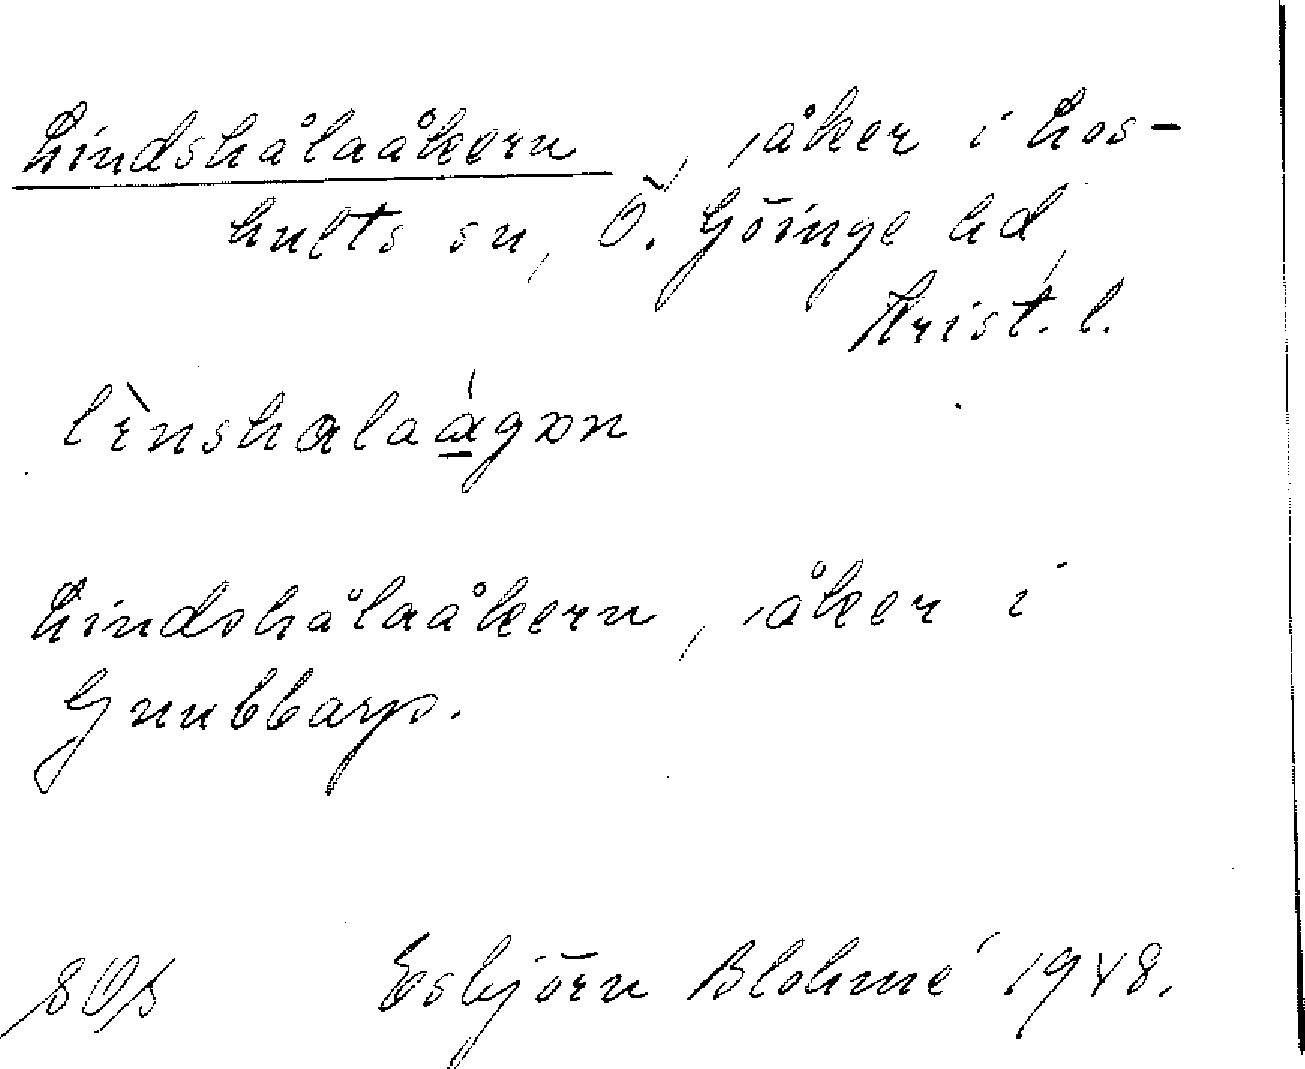 Lindshålaåkern, åker i Los-
hults sn, Ö. Göinge hd,
Krist. l.
lènshalaágɔn
Lindshålaåkern, åker i
Gnubbarp.
Esbjörn Blohmé 1948.